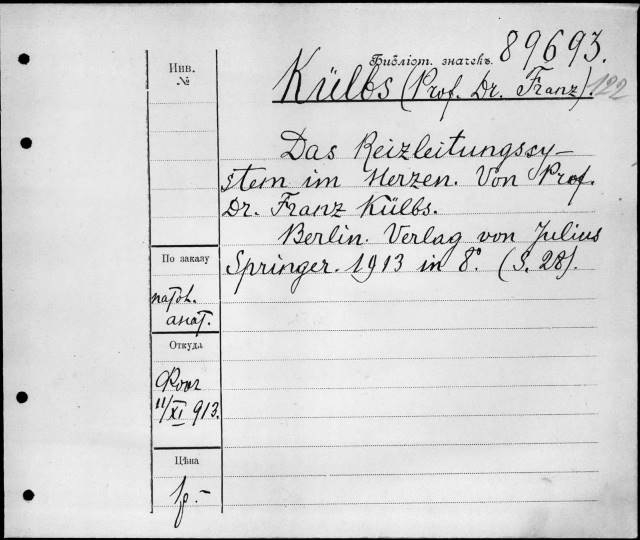 Библіот. значекъ. 89693.
Külbs (Prof. Dr. Franz). 122
Das Reizleitungssy-
stem im Herzen. Von Prof.
Dr. Franz Külbs.
Berlin. Verlag von Julius
Springer. 1913 in 8º. (S. 28).
Инв.
№
По заказу
патол.
анат.
Откуда
11/XI 913.
Цѣна
1р.-